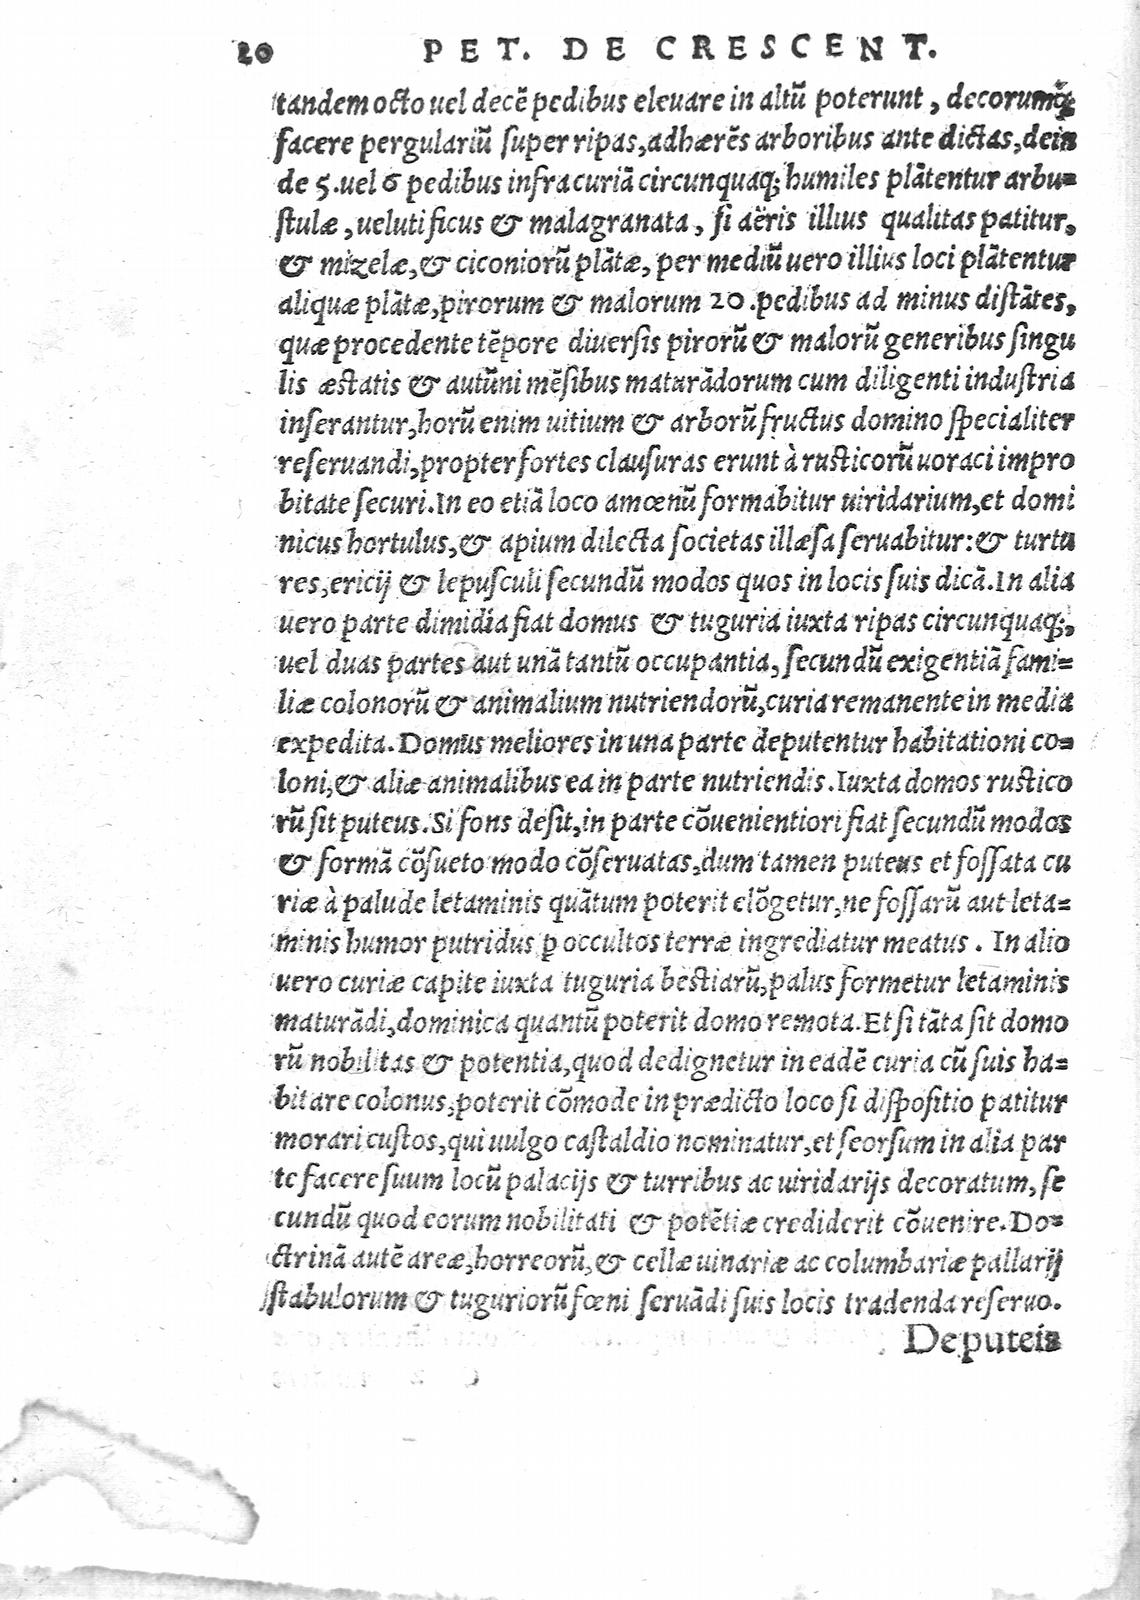 20 PET. DE CRESCENT.
tandem octo uel decẽ pedibus eleuare in altũ poterunt, decorumq́;
facere pergulariũ ſuper ripas, adhærẽs arboribus ante dictas, dein
de 5. uel 6 pedibus infra curiã circunquaq; humiles plãtentur arbu=
ſtulæ, ueluti ficus & malagranata, ſi aëris illius qualitas patitur,
& mizelæ, & ciconiorũ plãtæ, per mediũ uero illius loci plãtentur
aliquæ plãtæ, pirorum & malorum 20. pedibus ad minus diſtãtes,
quæ procedente tẽpore diuerſis pirorũ & malorũ generibus ſingu
lis æſtatis & autũni mẽſibus maturãdorum cum diligenti induſtria
inſerantur, horũ enim uitium & arborũ fructus domino ſpecialiter
reſeruandi, propter fortes clauſuras erunt à ruſticorũ uoraci impro
bitate ſecuri. In eo etiã loco amœnũ formabitur uiridarium, et domi
nicus hortulus, & apium dilecta ſocietas illæſa ſeruabitur: & turtu
res, ericij & lepuſculi ſecundũ modos quos in locis ſuis dicã. In alia
uero parte dimidia fiat domus & tuguria iuxta ripas circunquaq;,
uel duas partes aut unã tantũ occupantia, ſecundũ exigentiã fami=
liæ colonorũ & animalium nutriendorũ, curia remanente in media
expedita. Domus meliores in una parte deputentur habitationi co=
loni, & aliæ animalibus ea in parte nutriendis. Iuxta domos ruſtico
rũ ſit puteus. Si fons deſit, in parte cõuenientiori fiat ſecundũ modos
& formã cõſueto modo cõſeruatas, dum tamen puteus et foſſata cu
riæ à palude letaminis quãtum poterit elõgetur, ne foſſarũ aut leta=
minis humor putridus ꝑ occultos terræ ingrediatur meatus. In alio
uero curiæ capite iuxta tuguria beſtiarũ, palus formetur letaminis
maturãdi, dominica quantũ poterit domo remota. Et ſi tãta ſit domo
rũ nobilitas & potentia, quod dedignetur in eadẽ curia cũ ſuis ha=
bitare colonus, poterit cõmode in prædicto loco ſi diſpoſitio patitur
morari cuſtos, qui uulgo caſtaldio nominatur, et ſeorſum in alia par
te facere ſuum locũ palacijs & turribus ac uiridarijs decoratum, ſe
cundũ quod eorum nobilitati & potẽtiæ crediderit cõuenire. Do=
ctrinã autẽ areæ, horreorũ, & cellæ uinariæ ac columbariæ pallarij
ſtabulorum & tuguriorũ fœni ſeruãdi ſuis locis tradenda reſeruo.
De puteis